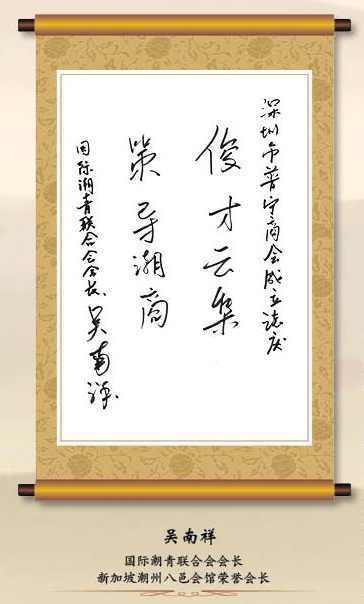 深圳市普宁商会成立誌庆
俊才云集
策潮商
国际潮青联合会会长 吴南祥
吴南祥
国际潮青联合会会长
新加坡潮州八邑会馆荣誉会长